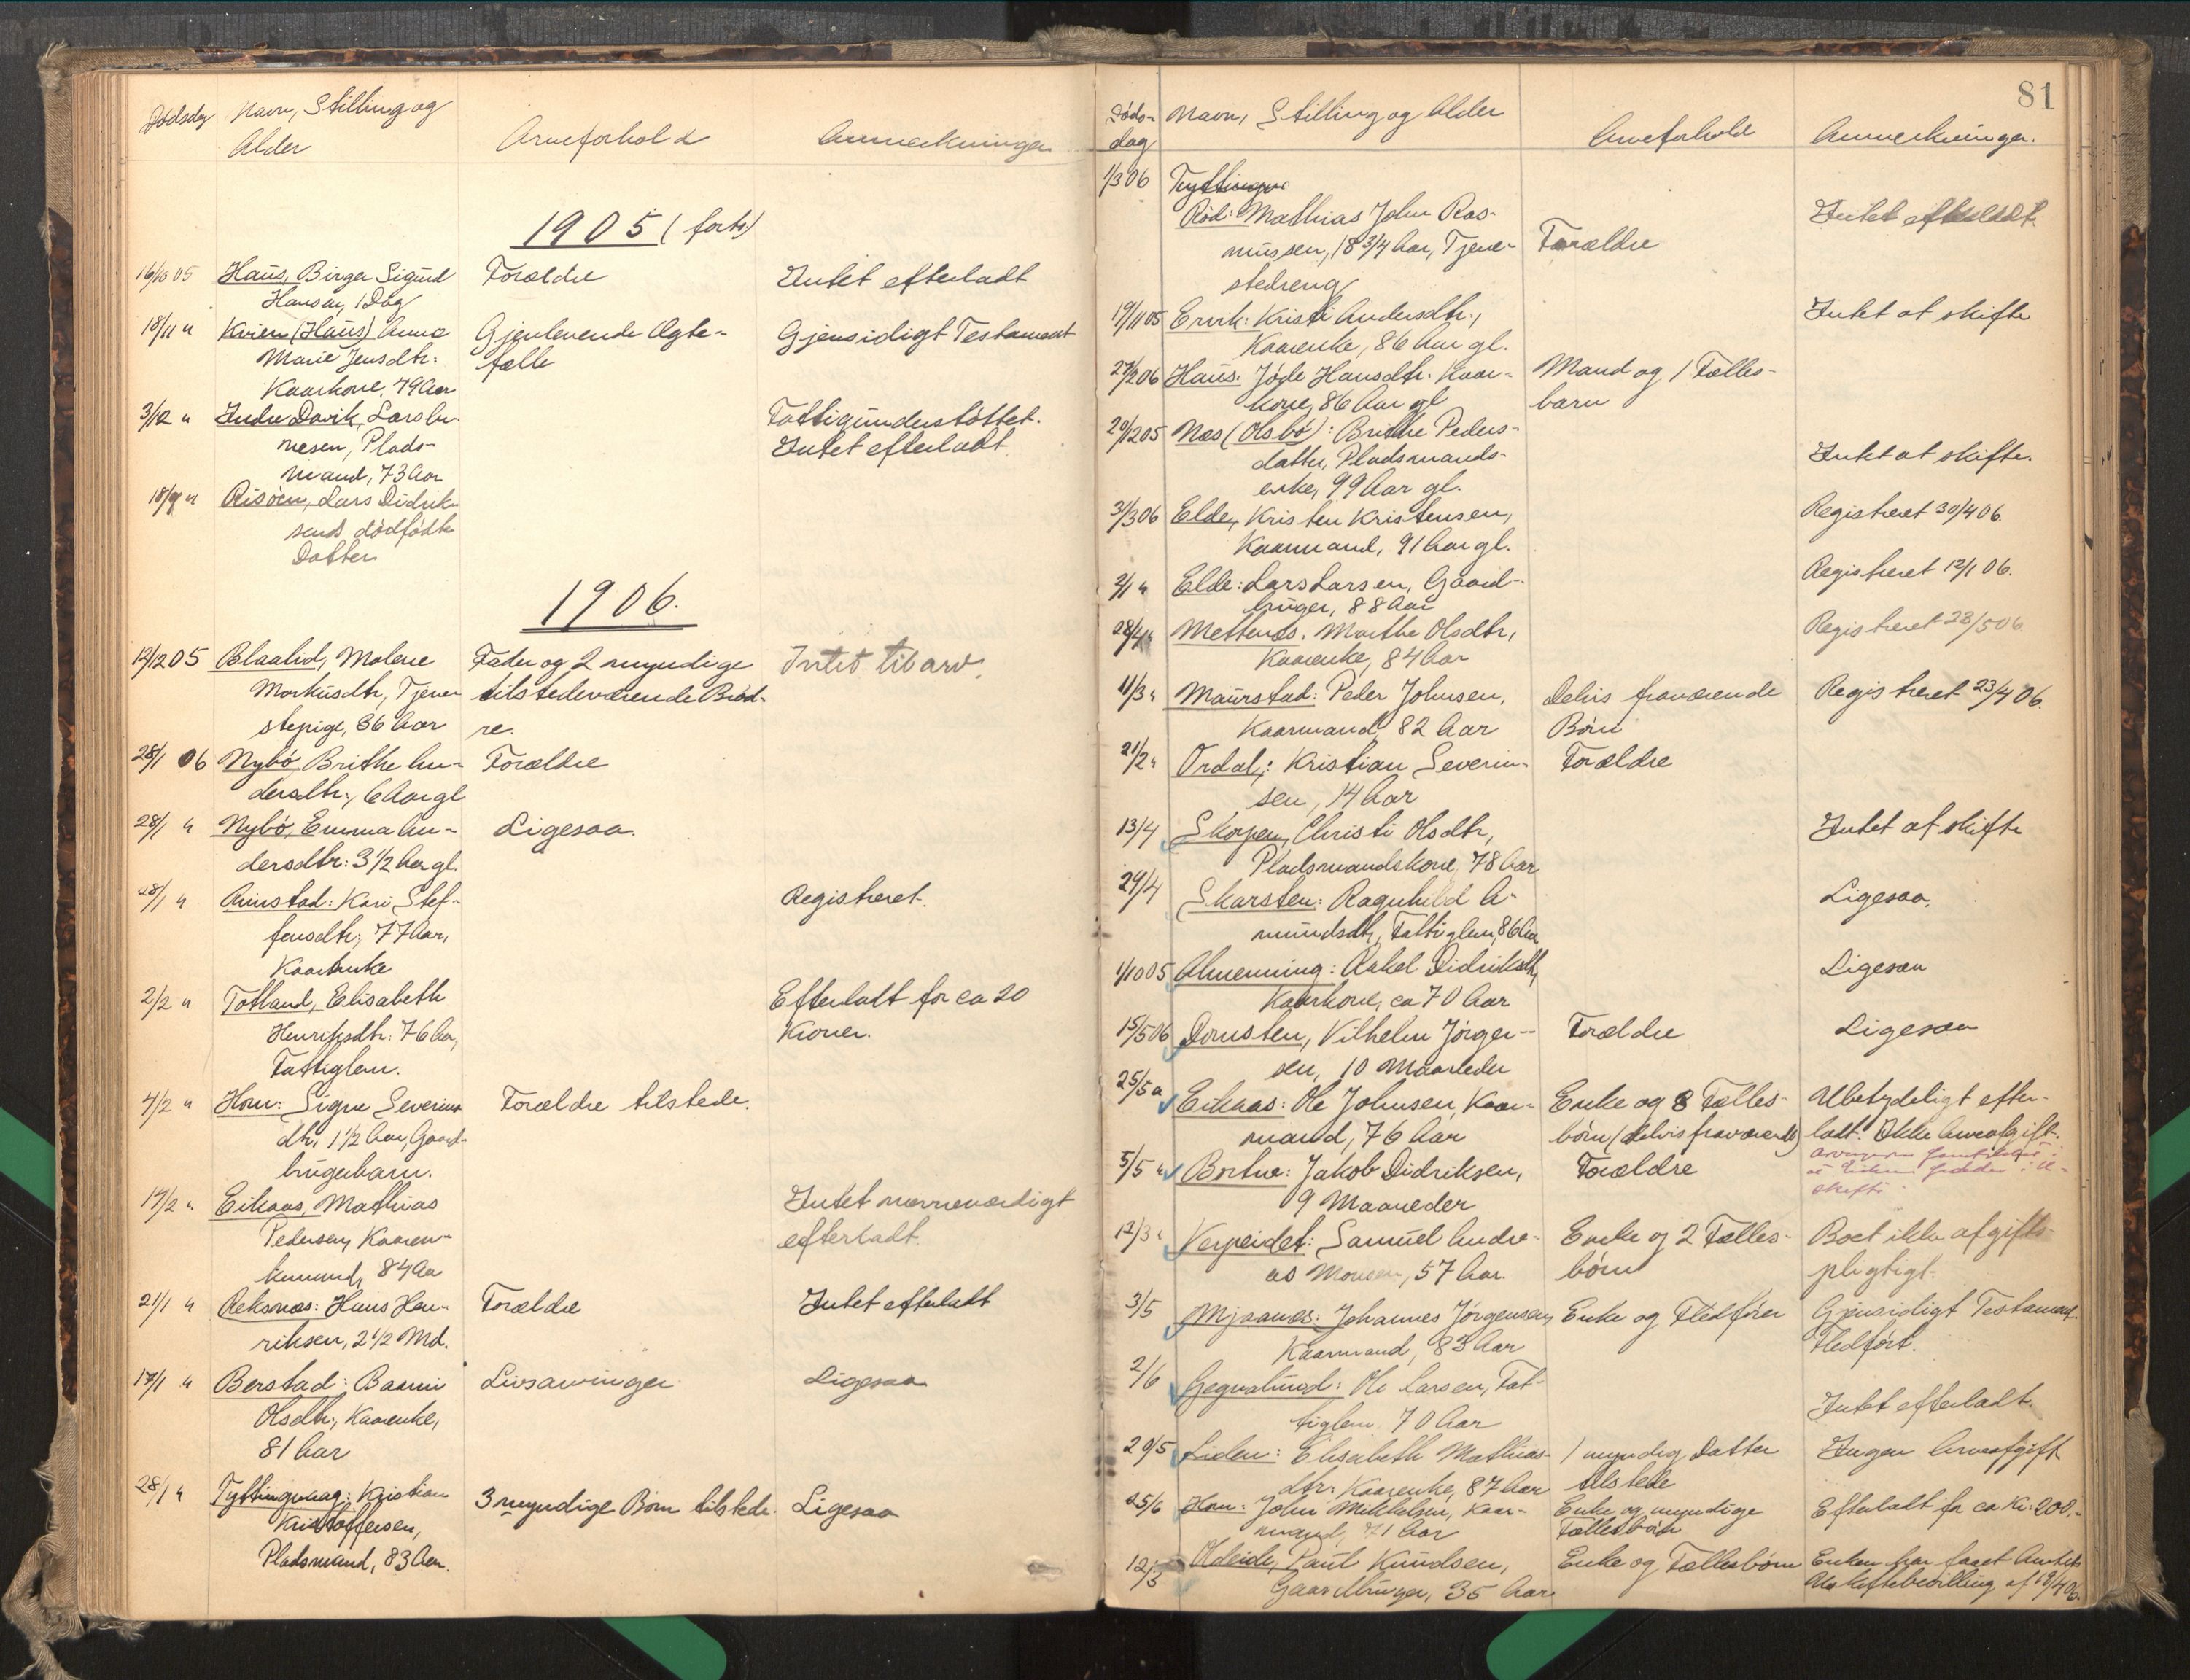 Dødsdag Navn, Stilling og
Alder
Arveforhold
Anmerkninger
1905 (forts)
16/10 05 Haus, Birger Sigurd Forældre Intet efterladt
Hansen, 1 Dag
18/11 " Kvien (Haus) Anne Gjenlevende Ægte- Gjensidigt Testament
Marie Jensdtr: fælle
Kaarkone, 79 Aar
3/12 " Indre Davik, Lars Fattigunderstøttet.
Plads- Intet efterladt
mand, 73 Aar
18/9 " Risøen, Lars Didrik-
sens dødfødte
Datter
1906.
12/12 05 Blaalid, Malene Fader og 2 myndige Intet til arv.
Markusdtr, Tjene- tilstedeværende Brød-
stepige, 36 Aar re.
28/1 06 Nybø, Brithe An- Forældre
dersdtr:, 6 Aar gl
28/1 " Nybø, Emma An- Ligesaa.
dersdtr: 3 1/2 Aar gl.
28/1 " Rimstad: Kari Stef- Registreret.
fensdtr; 77 Aar,
Kaarenke
2/2 " Totland, Elisabeth Efterladt for ca 20
Henriksdtr: 76 Aar, Kroner.
Fattiglem.
4/2 " Horn: Signe Severins Forældre tilstede.
dtr, 1 1/2 Aar, Gaard-
brugerbarn.
14/2 " Eikaas, Mathias Intet nævneværdigt
Pedersen, Kaaren- efterladt.
kemand, 84 Aar
21/1 " Reksnæs: Hans Hen- Forældre Intet efterladt
riksen, 2 1/2 Md.
17/1 " Berstad: Baarni Livsarvinger Ligesaa
Olsdtr:, Kaarenke,
81 Aar
28/1 " Tyttingvaag: Kristian 3 myndige Børn tilstede. Ligesaa
Kristoffersen,
Pladsmand, 83 Aar.
81
Døds- Navn, Stilling og Alder
dag Arveforhold Anmerkninger.
1/3 06 Tyttingen
Rød: Mathias John Ras- Intet efterladt.
mussen, 18 3/4 Aar, Tjene- Forældre
stedreng
19/11 05 Ervik: Kristi Andersdtr:, Intet at skifte
Kaarenke, 86 Aar gl.
27/2 06 Haus: Jøde Hansdtr. Kaar- Mand og 1 Fælles-
kone, 86 Aar gl barn
20/12 05 Næs (Olsbø): Brithe Peders-
datter, Pladsmands- Intet at skifte.
enke, 99 Aar gl.
3/3 06 Elde, Kristen Kristensen, Registreret 30/4 06.
Kaarmand, 91 Aar gl.
2/1 " Elde: Lars Larsen, Gaard- Registreret 12/1 06.
bruger, 88 Aar
28/4 " Mettenæs. Marthe Olsdtr, Registreret 23/5 06
Kaarenke, 84 Aar
11/3 " Maurstad: Peder Johnsen, Delvis fraværende Registreret 23/4 06.
Kaarmand, 82 Aar Børn
21/2 " Ordal: Kristian Severin- Forældre
sen, 14 Aar
13/4 Skorpen, Christi Olsdtr, Intet at skifte
Pladsmandskone, 78 Aar
29/4 Skarsten: Ragnhild A- Ligesaa.
mundsdtr, Fattiglem, 86 Aar
1/10 05 Almenning: Rakel Didriksdtr, Ligesaa
Kaarkone, ca 70 Aar
15/5 06 Domsten, Vilhelm Jørgen- Forældre Ligesaa
sen, 10 Maaneder
25/5 " Eikaas: Ole Johnsen, Kaar- Enke og 8 Fælles- Ubetydeligt efter-
mand, 76 Aar børn (delvis fraværende) ladt. Ikke Arveafgift.
5/5 " Bortne: Jakob Didriksen, Forældre
9 Maaneder skifte
12/3 " Verpeidet: Samuel Andre- Enke og 2 Fælles- Boet ikke afgifts-
as Monsen, 57 Aar. børn pligtigt.
3/5 Mjaanæs: Johannes Jørgensen, Enke og Fledfører Gjensidigt Testament.
Kaarmand, 83 Aar Fledført.
2/6 Gegnalund: Ole Larsen, Fat-
tiglem 70 Aar Intet efterladt.
29/5 Liden: Elisabeth Mathias- 1 myndig Datter Ingen Arveafgift
dtr: Kaarenke, 87 Aar tilstede
25/6 Horn: John Mikkelsen, Kaar- Enke og myndige Efterladt for ca Kr: 200.-
mand, 71 Aar Fællesbørn
12/3 Oldeide, Paul Knudsen, Enke og Fællesbørn Enken har faaet Amtets
Gaardbruger, 35 Aar Uskiftebevilling af 19/4 06.